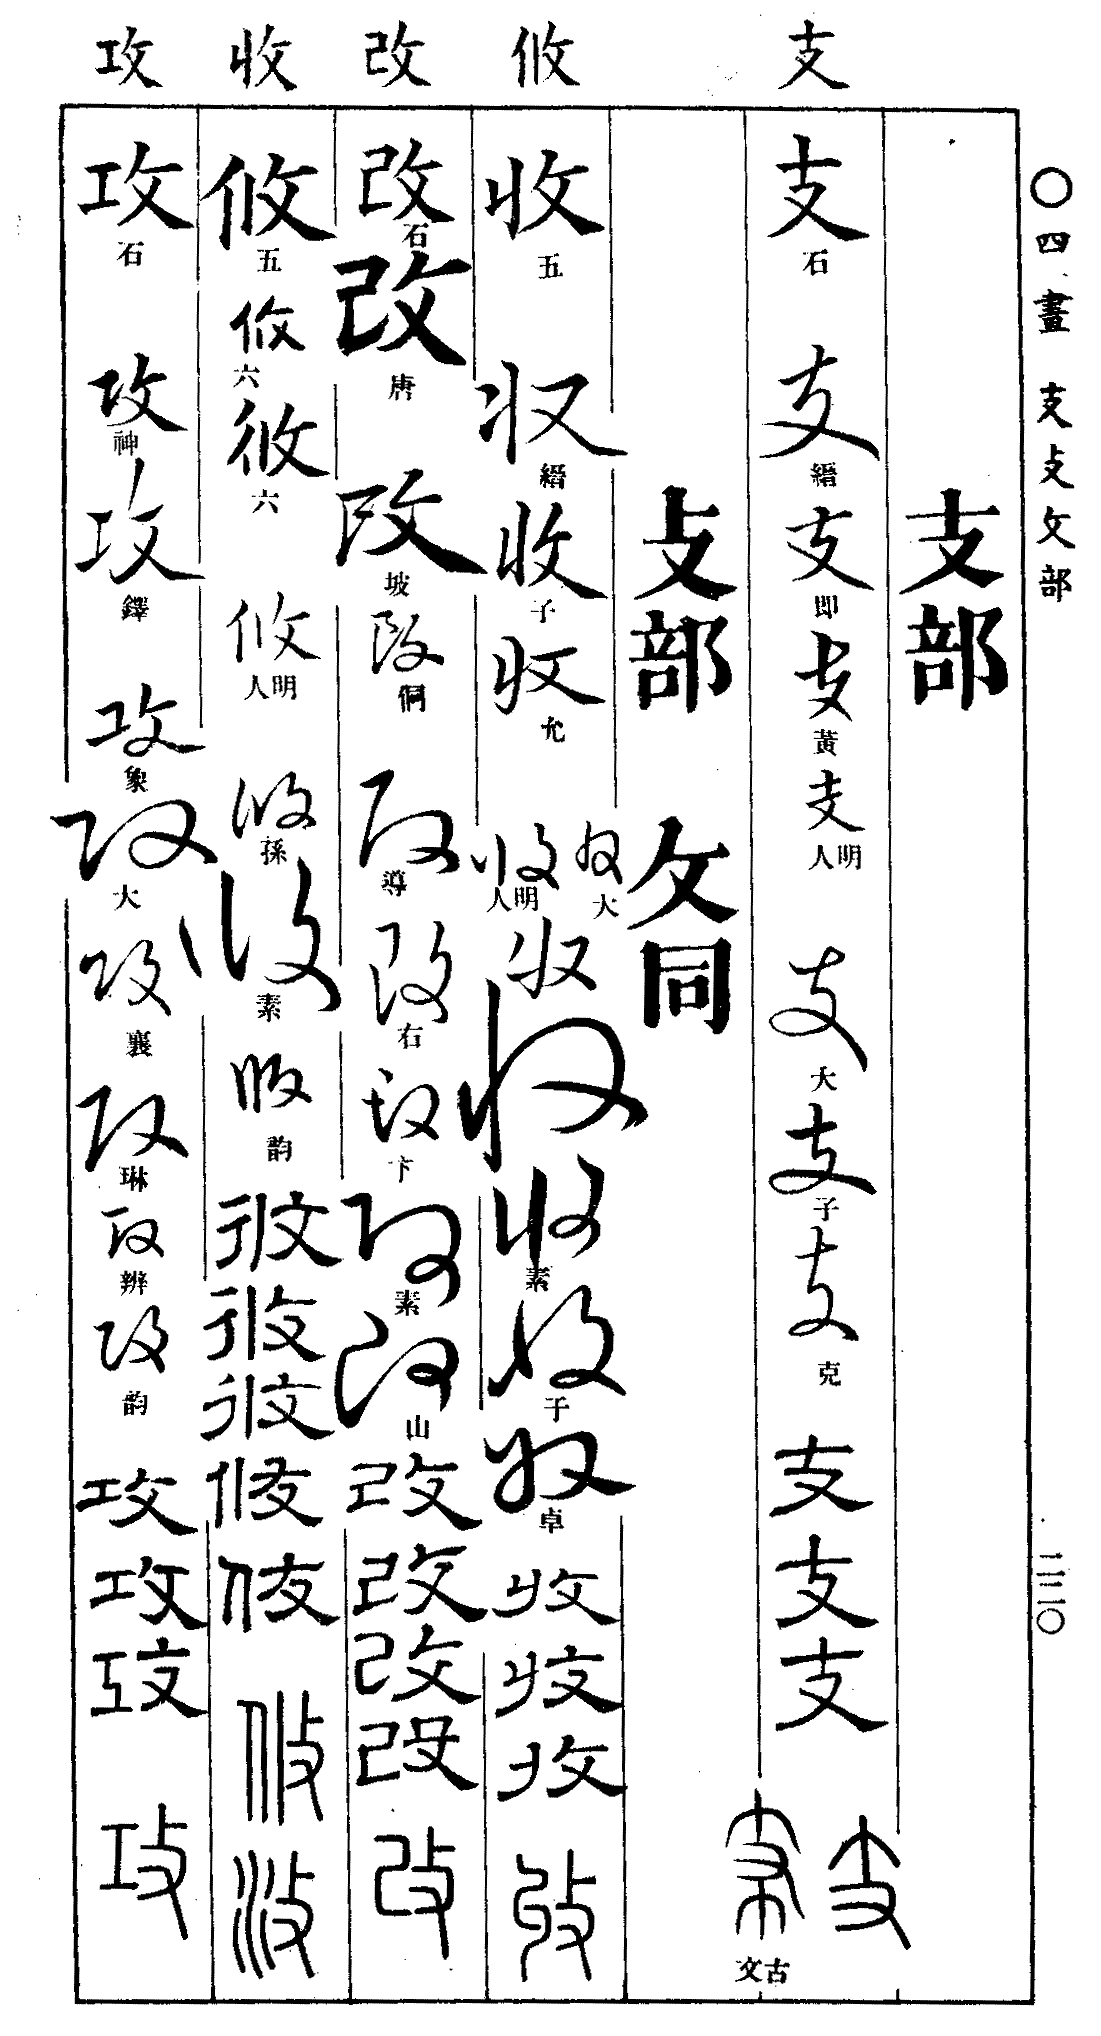 ○四畫 支攴攵部 二二〇
支
攸
改
收
攻
支部
支石 支縉 支即 支黃 支明人 支大 支子 支克 支 支 支 支 支古文
攴部 攵同
收五 收縉 收子 收允 收大 收明人 收 收 收素 收于 收卓 收 收 收 收
改石 改唐 改坡 改侗 改導 改右 改卞 改素 改山 改 改 改 改 改
攸五 攸六 攸六 攸明人 攸孫 攸素 攸韵 攸 攸 攸 攸 攸 攸 攸
攻石 攻神 攻鐸 攻象 攻大 攻襄 攻琳 攻辨 攻韵 攻 攻 攻 攻